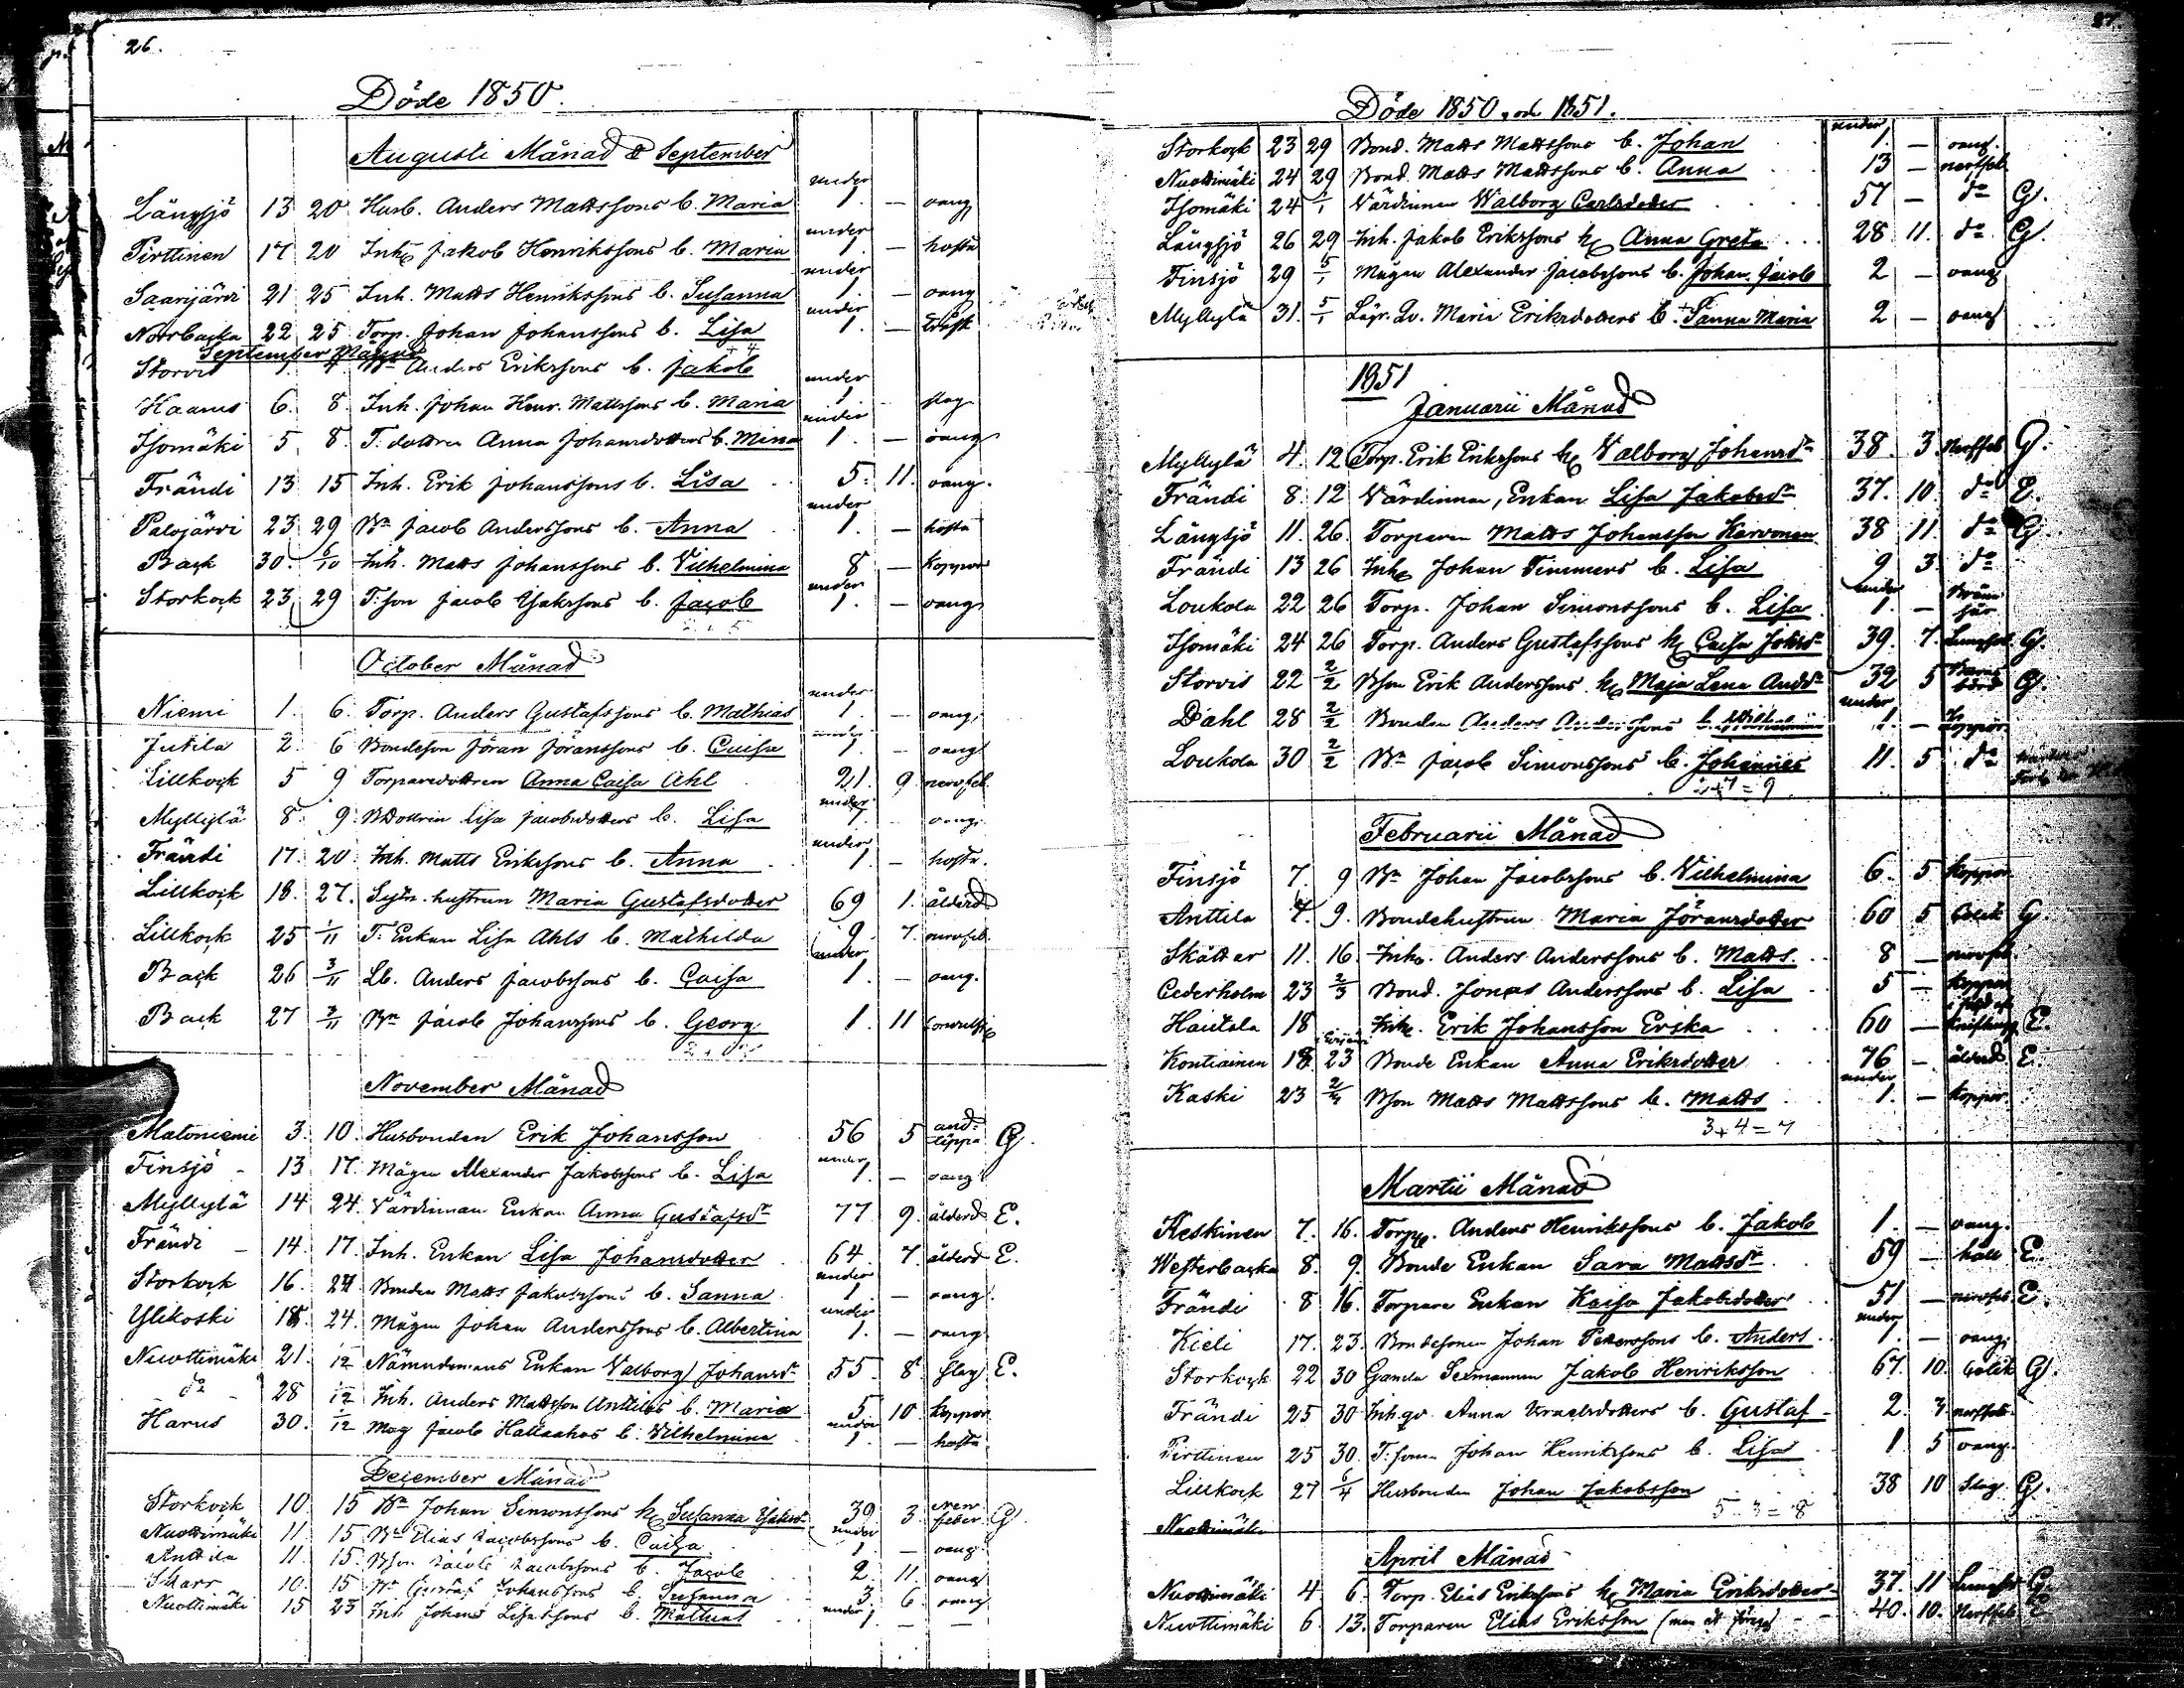 26.
Döde 1850.
Augusti Månad & September
Långsjö 13 20 Husb. Anders Mattssons b. Maria under 1. — oang.
Pirttinen 17 20 Inh. Jakob Henrikssons b. Maria under 1 — hosta
Saarijärvi 21 25 Inh. Matts Henrikssons b. Susanna under 1 — oang
Norrbacka 22 25 Torp. Johan Johanssons b. Lisa under 1. —
September Månad
Storvis 4 Bn Anders Erikssons b. Jakob
Haarus 6. 8. Inh. Johan Henr. Mattssons b. Maria under 1 slag
Isomäki 5 8. T. dottren Anna Johansdotters b. Mina under 1. — oang
Frändi 13 15 Inh. Erik Johanssons b. Lisa 5. 11. oang.
Palojärvi 23 29 Bn Jacob Anderssons b. Anna under 1. — hosta
Back 30. 6/10 Inh. Matts Johanssons b. Vilhelmina 8 — koppor
Storkock 23 29 T. son Jacob Isakssons b. Jacob under 1. — oang
October Månad
Niemi 1. 6. Torp. Anders Gustafssons b. Mathias under 1. — oang.
Jutila 2. 6 Bondeson Jöran Jöranssons b. Caisa under 1. — oang
Lillkock 5 9 Torparedottren Anna Caisa Ahl 21. 9 nervfeb.
Myllylä 8. 9. Bdottren Lisa Jacobsdotters b. Lisa under 1. oang.
Frändi 17. 20 Inh. Matts Erikssons b. Anna under 1. — hosta.
Lillkock 18. 27. Sytn. hustrun Maria Gustafsdotter 69 1. ålderd
Lillkock 25 1/11 T. Enkan Lisa Ahls b. Mathilda 9 7 nervfeb.
Back 26 3/11 Lb. Anders Jacobssons b. Caisa under 1. — oang.
Back 27 3/11 Bn Jacob Johanssons b. Georg 1. 11
November Månad
Matoniemi 3. 10. Husbonden Erik Johansson 56 5 and-täppa G.
Finsjö - 13 17. Mågen Alexander Jakobssons b. Lisa under 1. — oang
Myllylä 14 24. Värdinnan Enkan Anna Gustafsdr 77 9. ålderd E.
Frändi — 14. 17. Inh. Enkan Lisa Johansdotter 64 7. ålderd E.
Storkock 16. 24 Bonden Matts Jakobssons b. Sanna under 1 — oang.
Ylikoski 18 24. Mågen Johan Anderssons b. Albertina under 1. — oang
Nuottimäki 21. 1/12 Nämndemans Enkan Valborg Johansdr 55 8. slag E.
do - 28 1/12 Inh. Anders Mattsson Anttilas b. Maria 5 10 koppor
Harus 30. 1/12 Mag Jacob Hallaahos b. Wilhelmina under 1 — hosta
December Månad
Storkock 10. 15 Bn Johan Simonssons h. Susanna 39 3. nerv. feber G.
Nuottimäki 11 15. Bn Elias Jacobssons b. Caisa under 1. — oang.
Anttila 11. 15. Bson Jacob Jacobssons b. Jacob 2. 11. oang
Skars 10. 15 Bn Gustaf Johanssons b. Susanna 3 6 oang
Nuottimäki 15 23 Inh. Johans b. Mathias under 1. — —
27.
Döde 1850 och 1851.
Storkock 23 29 Bond. Matts Mattssons b. Johan under 1. — oang.
Nuottimäki 24 29 Bond. Matts Mattssons b. Anna 13 — nervfeb
Isomäki 24 1/1 Värdinnan Walborg Carlsdotter 57 — do G.
Långsjö 26 29 Inh. Jakob Erikssons h. Anna Greta 28 11. do G
Finsjö 29 5/1 Mågen Alexander Jacobssons b. Johan Jacob 2 — oang
Myllylä 31. 5/1 Lägr. Qv. Maria Eriksdotters b. Sanna Maria 2 — oang
1851
Januarii Månad
Myllylä 4. 12 Torp. Erik Erikssons h. Valborg Johansdr 38. 3 Nervfeb G.
Frändi 8. 12 Värdinnan, Enkan Lisa Jakobsdr 37. 10. do E.
Långsjö 11. 26. Torparen Matts Johansson Karvonen 38 11. do G.
Frändi 13 26 Inh. Johan Timmers b. Lisa 9 3. do
Loukola 22 26 Torp. Johan Simonssons b. Lisa under 1. —
Isomäki 24 26 Torp. Anders Gustafssons h. Caisa Johsdr 39. 7. G.
Storvis 22 2/2 Bson Erik Anderssons h. Maja Lena Andsdr 32 5 Barnsbörd G.
Dahl 28 2/2 Bonden Anders Anderssons b. Wilhelmina under 1. — koppor.
Loukola 30 2/2 Bn Jacob Simonssons b. Johannes 11. 5 do
Februarii Månad
Finsjö 7. 9 Bn Johan Jacobssons b. Vilhelmina 6. 5 koppor
Anttila 7. 9. Bondehustrun Maria Jöransdotter 60 5 Colik G.
Skättar 11. 16. Inh. Anders Anderssons b. Matts. 8 — nervfeb.
Cederholm 23 2/3 Bond. Jonas Anderssons b. Lisa 5 — koppor
Hautala 18 Inh. Erik Johansson Erska 60 — E.
Kontiainen 18. 23 Bonde Enkan Anna Eriksdotter 76 — ålderd E.
Kaski 23 Bson Matts Mattssons b. Matts under 1. — koppor.
3 + 4 = 7
Martii Månad
Keskinen 7. 16. Torp. Anders Henrikssons b. Jakob 1. — oang.
Westerbacka 8. 9. Bonde Enkan Sara Mattsdr 59 — håll E.
Frändi 8 16. Torpare Enkan Kaisa Jakobsdotter 51 — nervfeb E.
Kieli 17. 23. Bondesonen Johan Petterssons b. Anders under 1. — oang.
Storkock 22 30 Gamla Sexmannen Jakob Henriksson 67. 10. Colik G.
Frändi 25 30 Inh. qv. Anna Israelsdotters b. Gustaf 2. 3. nervfeb.
Pirttinen 25 30. T. sonen Johan Henrikssons b. Lisa 1 5 oang.
Lillkock 27 6/4 Husbonden Johan Jakobsson 38 10 Slag. G.
5 + 3 = 8
Nuottimäki
April Månad
Nuottimäki 4. 6. Torp. Elias Erikssons h. Maria Eriksdotter 37. 11 G.
Nuottimäki 6. 13. Torparen Elias Eriksson 40. 10. Nervfeb E